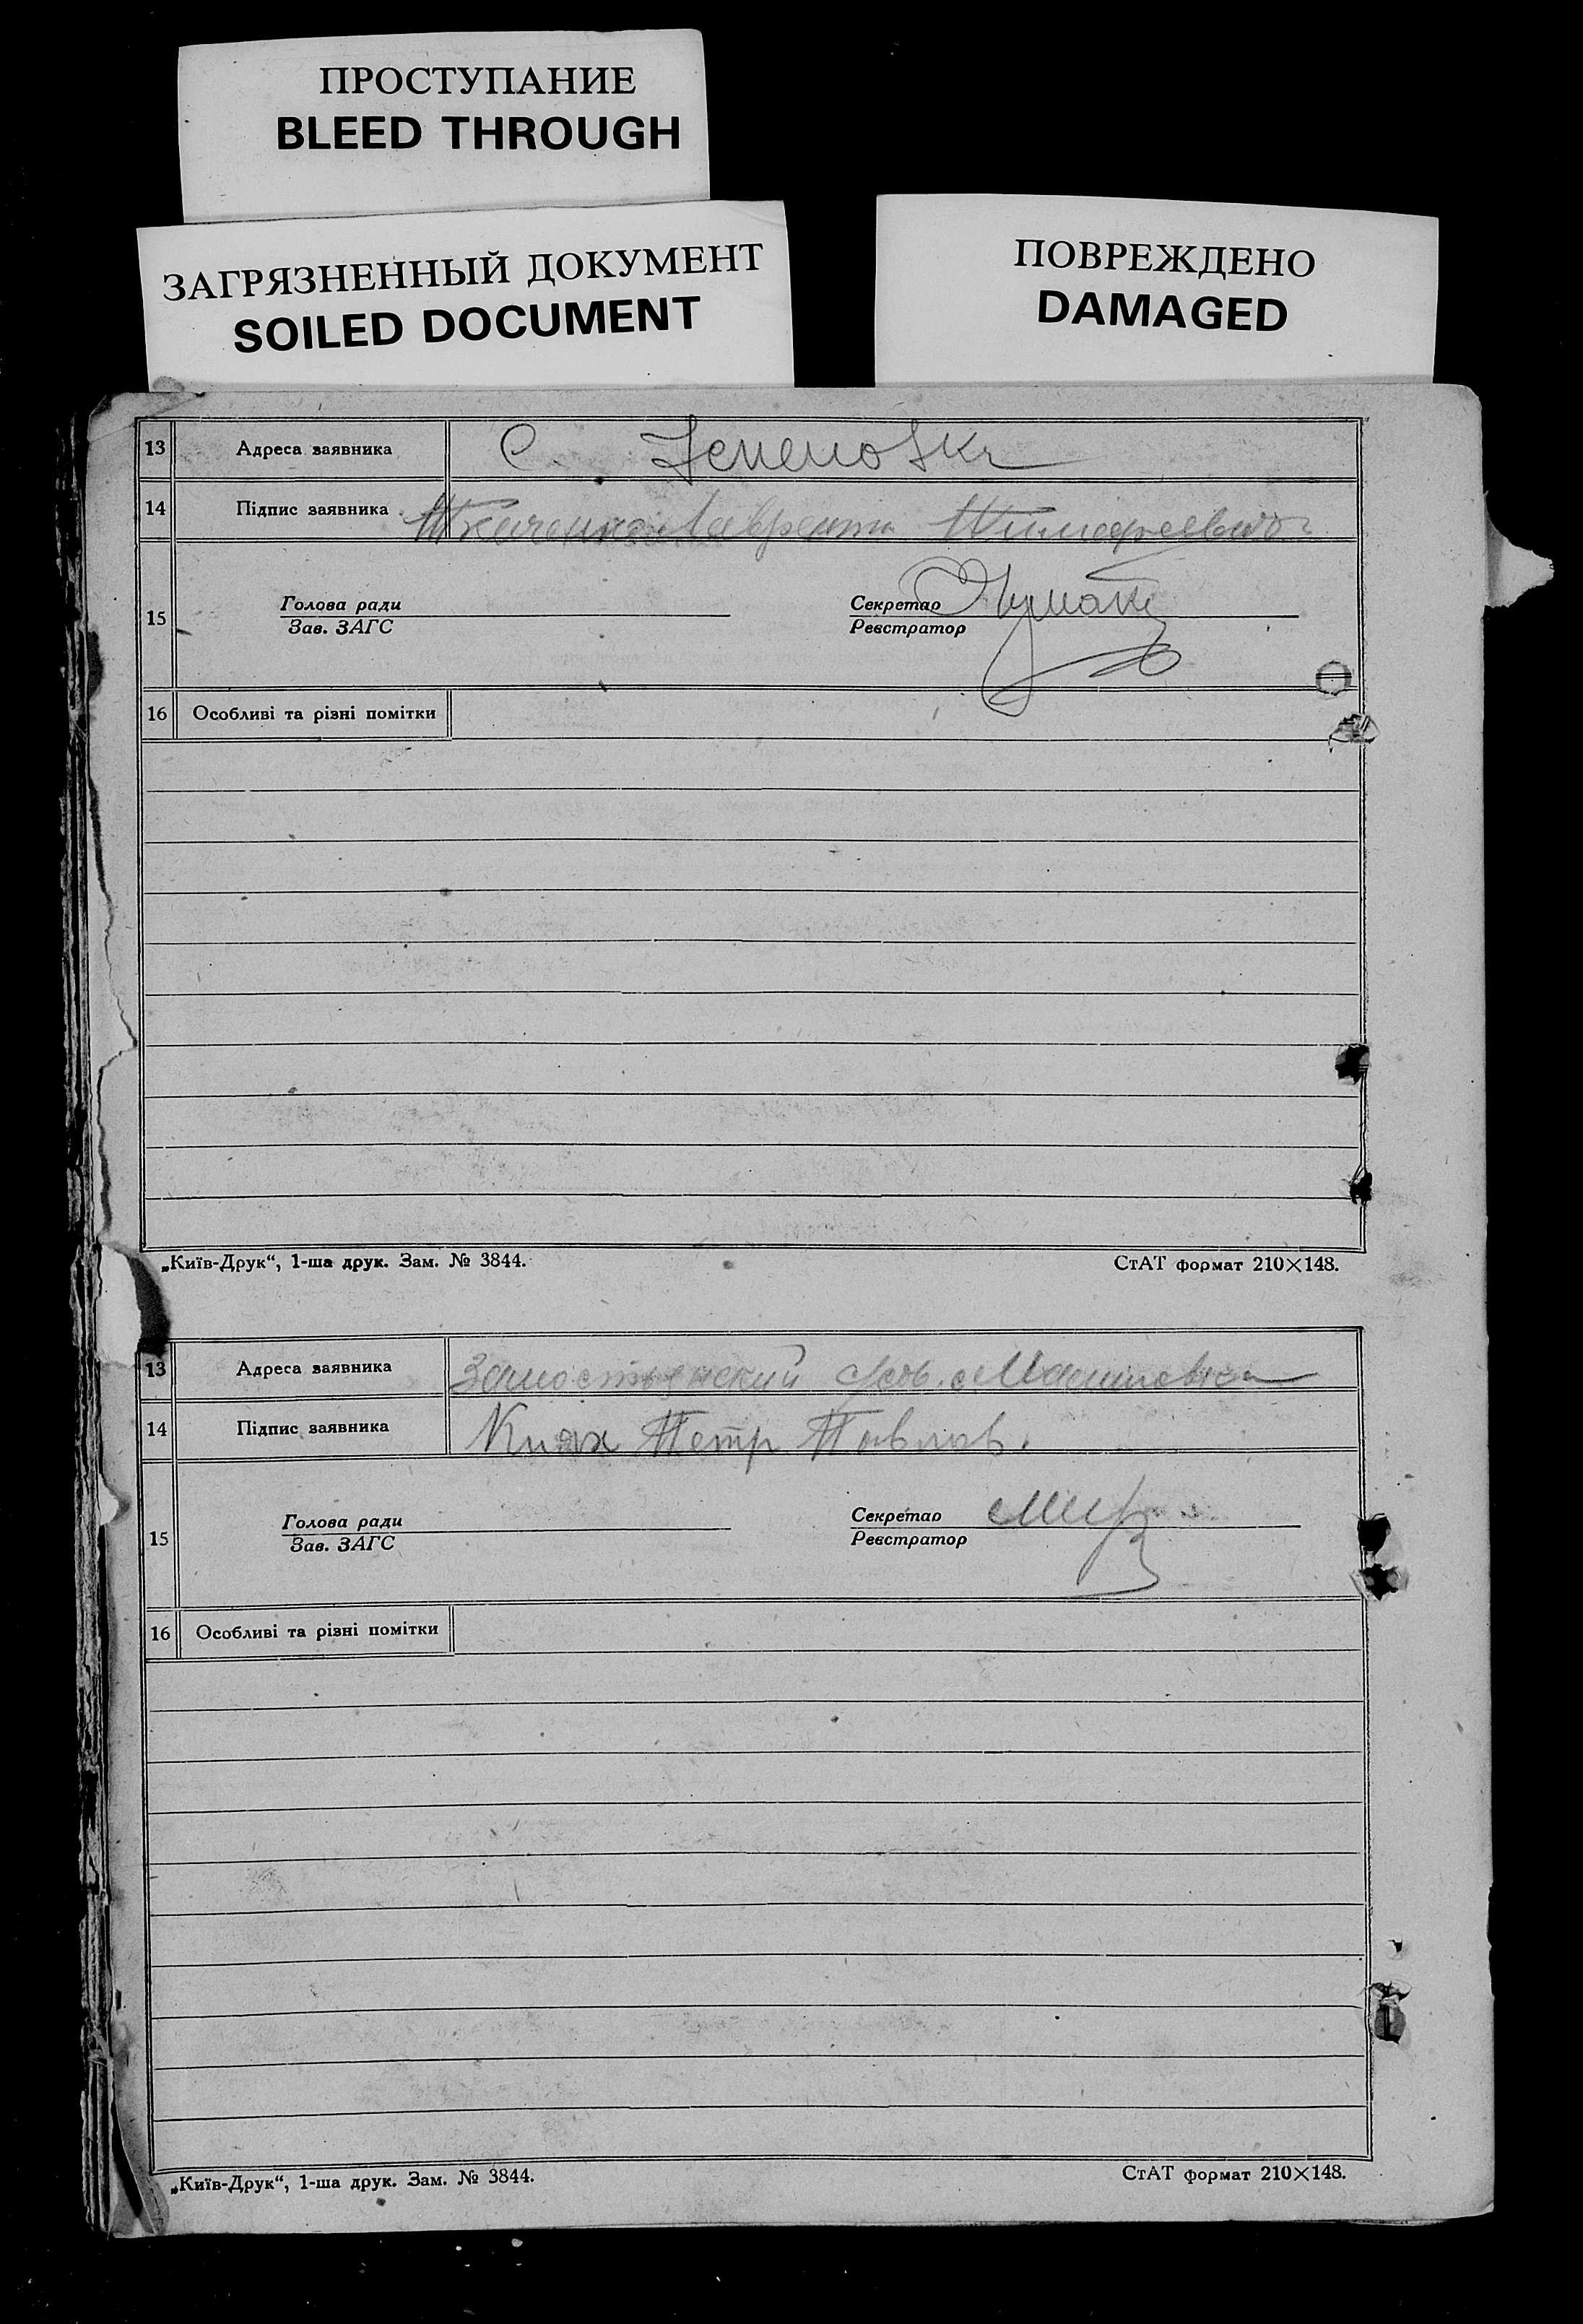 ПРОСТУПАНИЕ
BLEED THROUGH
ЗАГРЯЗНЕННЫЙ ДОКУМЕНТ
SOILED DOCUMENT
ПОВРЕЖДЕНО
DAMAGED
13 Адреса заявника С.
14 Підпис заявника Ткаченко Лаврентий Тимофеевич
15 Голова ради
Зав. ЗАГС
Секретар
Реєстратор
16 Особливі та різні помітки
„Київ-Друк“, 1-ша друк. Зам. № 3844.
СтАТ формат 210×148.
13 Адреса заявника с
14 Підпис заявника Княх Петр Павлов.
15 Голова ради
Зав. ЗАГС
Секретар
Реєстратор
16 Особливі та різні помітки
„Київ-Друк“, 1-ша друк. Зам. № 3844.
СтАТ формат 210×148.